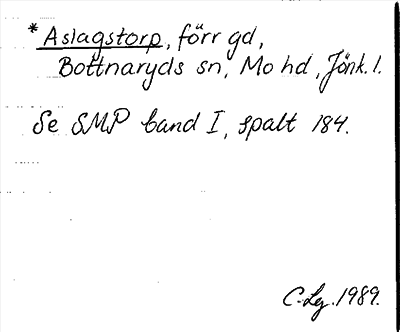 * Aslagstorp, förr gd,
Bottnaryds sn, Mo hd, Jönk. l.
Se SMP band I, spalt 184.
C-Lg. 1989.